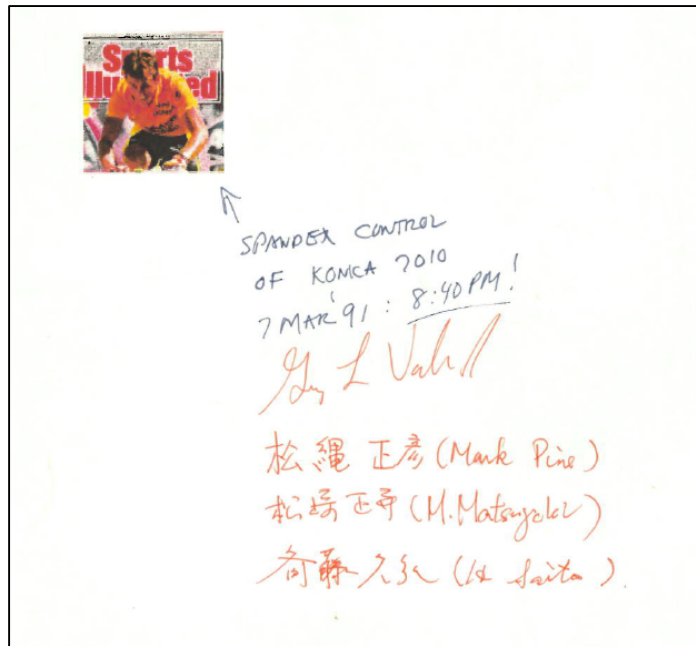 Sports
Illustrated
SPANDEX CONTROL
OF KONICA 7010
7 MAR '91 : 8:40 PM!
松縄 正彦 (Mark Pine)
松崎正年 (M. Matsuzaki)
斉藤久弘 (H Saito)